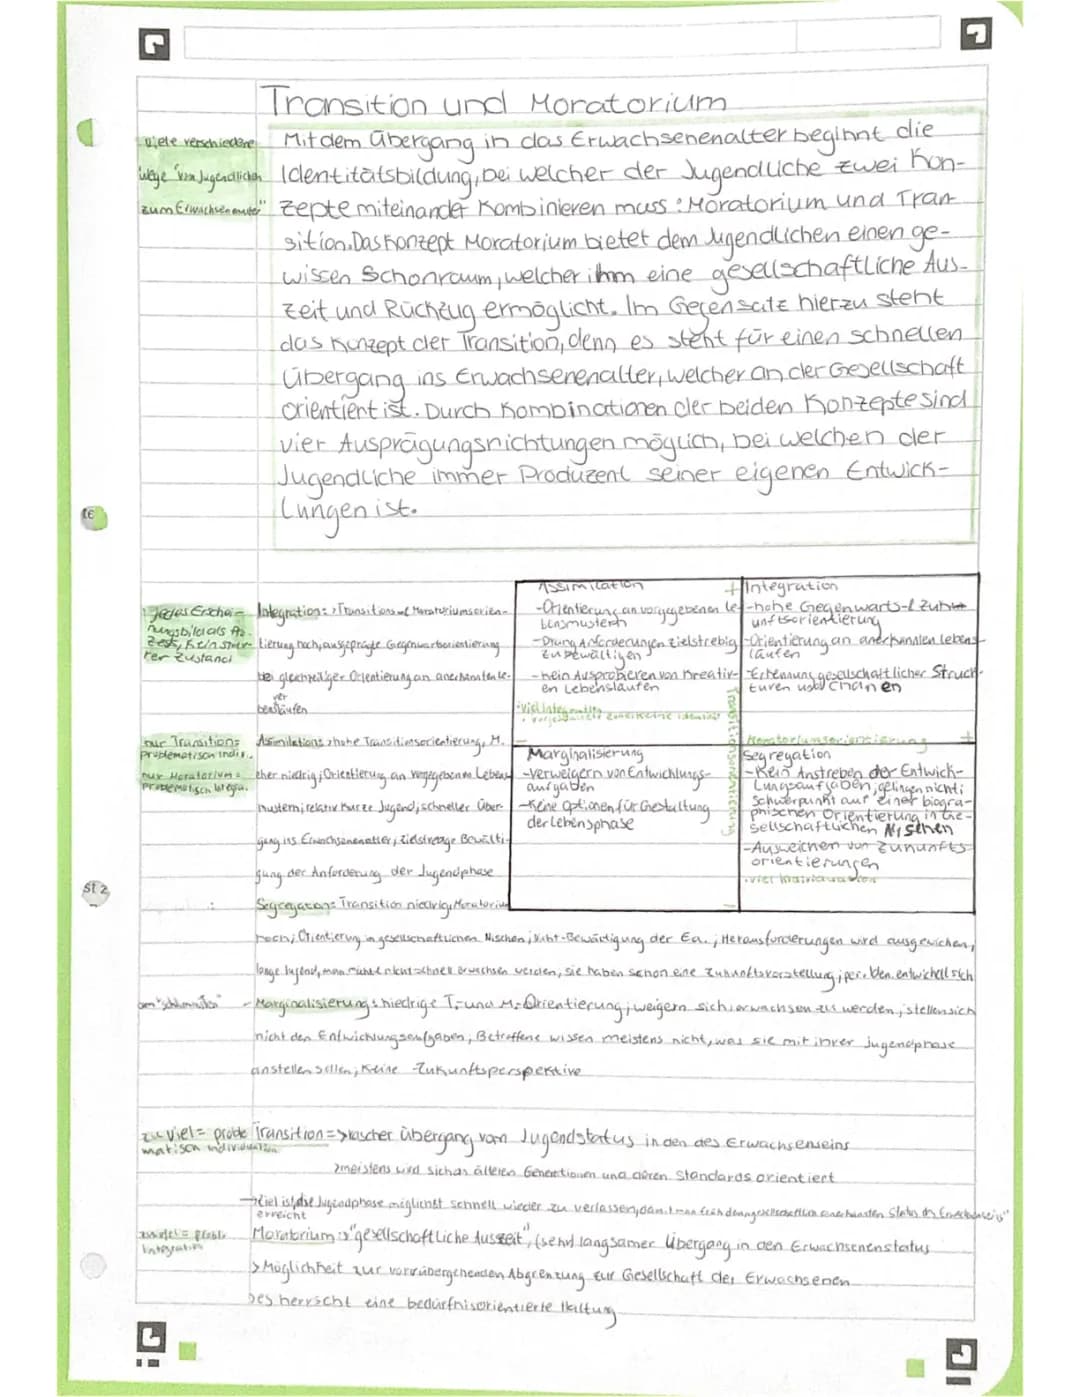 Transition und Moratorium
viele verschiedene
Wege "vom Jugendlichen
zum Erwachsenen"
Mit dem Übergang in das Erwachsenenalter beginnt die
Identitätsbildung, bei welcher der Jugendliche zwei Kon-
zepte miteinander kombinieren muss: Moratorium und Tran-
sition. Das Konzept Moratorium bietet dem Jugendlichen einen ge-
wissen Schonraum, welcher ihm eine gesellschaftliche Aus-
zeit und Rückzug ermöglicht. Im Gegensatz hierzu steht
das Konzept der Transition, denn es steht für einen schnellen
Übergang ins Erwachsenenalter, welcher an der Gesellschaft
orientiert ist. Durch Kombinationen der beiden Konzepte sind
vier Ausprägungsrichtungen möglich, bei welchen der
Jugendliche immer Produzent seiner eigenen Entwick-
lungen ist.
Jedes Erschei-
nungsbild als
kein starrer Zustand
Integration: > Transitions- und Moratoriumsorien-
tierung hoch, ausgeprägte Gegenwartsorientierung
bei gleichzeitiger Orientierung an anerkannten Le-
bensläufen
nur Transition =
problematisch Indiv.
nur Moratorium =
problematisch Integr.
Assimilation: > hohe Transitionsorientierung, M.
eher niedrig; Orientierung an vorgegebenen Lebens-
mustern; relativ kurze Jugend, schneller Über-
gang ins Erwachsenenalter; zielstrebige Bewälti-
gung der Anforderung der Jugendphase
Segregation: Transition niedrig, Moratorium
hoch; Orientierung in gesellschaftlichen Nischen; Nicht-Bewältigung der Ea.; Herausforderungen wird ausgewichen,
lange Jugend, man möchte nicht schnell erwachsen werden, sie haben schon eine Zukunftsvorstellung;
am "schlimmsten"
- Marginalisierung: niedrige T.- und M.-Orientierung; weigern sich, erwachsen zu werden, stellen sich
nicht den Entwicklungsaufgaben, Betroffene wissen meistens nicht, was sie mit ihrer Jugendphase
anstellen sollen, keine Zukunftsperspektive
Assimilation
- Orientierung an vorgegebenen Le-
bensmustern
- Drang Anforderungen zielstrebig
zu bewältigen
- kein Ausprobieren von kreativ-
en Lebensläufen
· viel Integration
-
+
Integration
- hohe Gegenwarts- & Zuku
nftsorientierung
- Orientierung an anerkannten Lebens-
läufen
- Erkennung gesellschaftlicher Struk-
turen und Chancen
Transitionsorientierung
Moratoriumsorientierung
+
Marginalisierung
- verweigern von Entwicklungs-
aufgaben
- keine Optionen für Gestaltung
der Lebensphase
-
Segregation
- Kein Anstreben der Entwick-
lungsaufgaben, gelingen nicht;
Schwerpunkt auf einer biogra-
phischen Orientierung in ge-
sellschaftlichen Nischen
- Ausweichen von Zukunfts-
orientierungen
· viel Individuation
zu viel = proble-
matisch Individuation
Transition => rascher Übergang vom Jugendstatus in den des Erwachsenseins
> meistens wird sich an älteren Generationen und deren Standards orientiert
→ Ziel ist, die Jugendphase möglichst schnell wieder zu verlassen, damit man früh den gesellschaftlich anerkannten Status des Erwachsenseins
erreicht
zu viel = probl.
Integration
Moratorium: > "gesellschaftliche Auszeit", (sehr) langsamer Übergang in den Erwachsenenstatus
> Möglichkeit zur vorrübergehenden Abgrenzung zur Gesellschaft der Erwachsenen
> es herrscht eine bedürfnisorientierte Haltung
t6
st 2